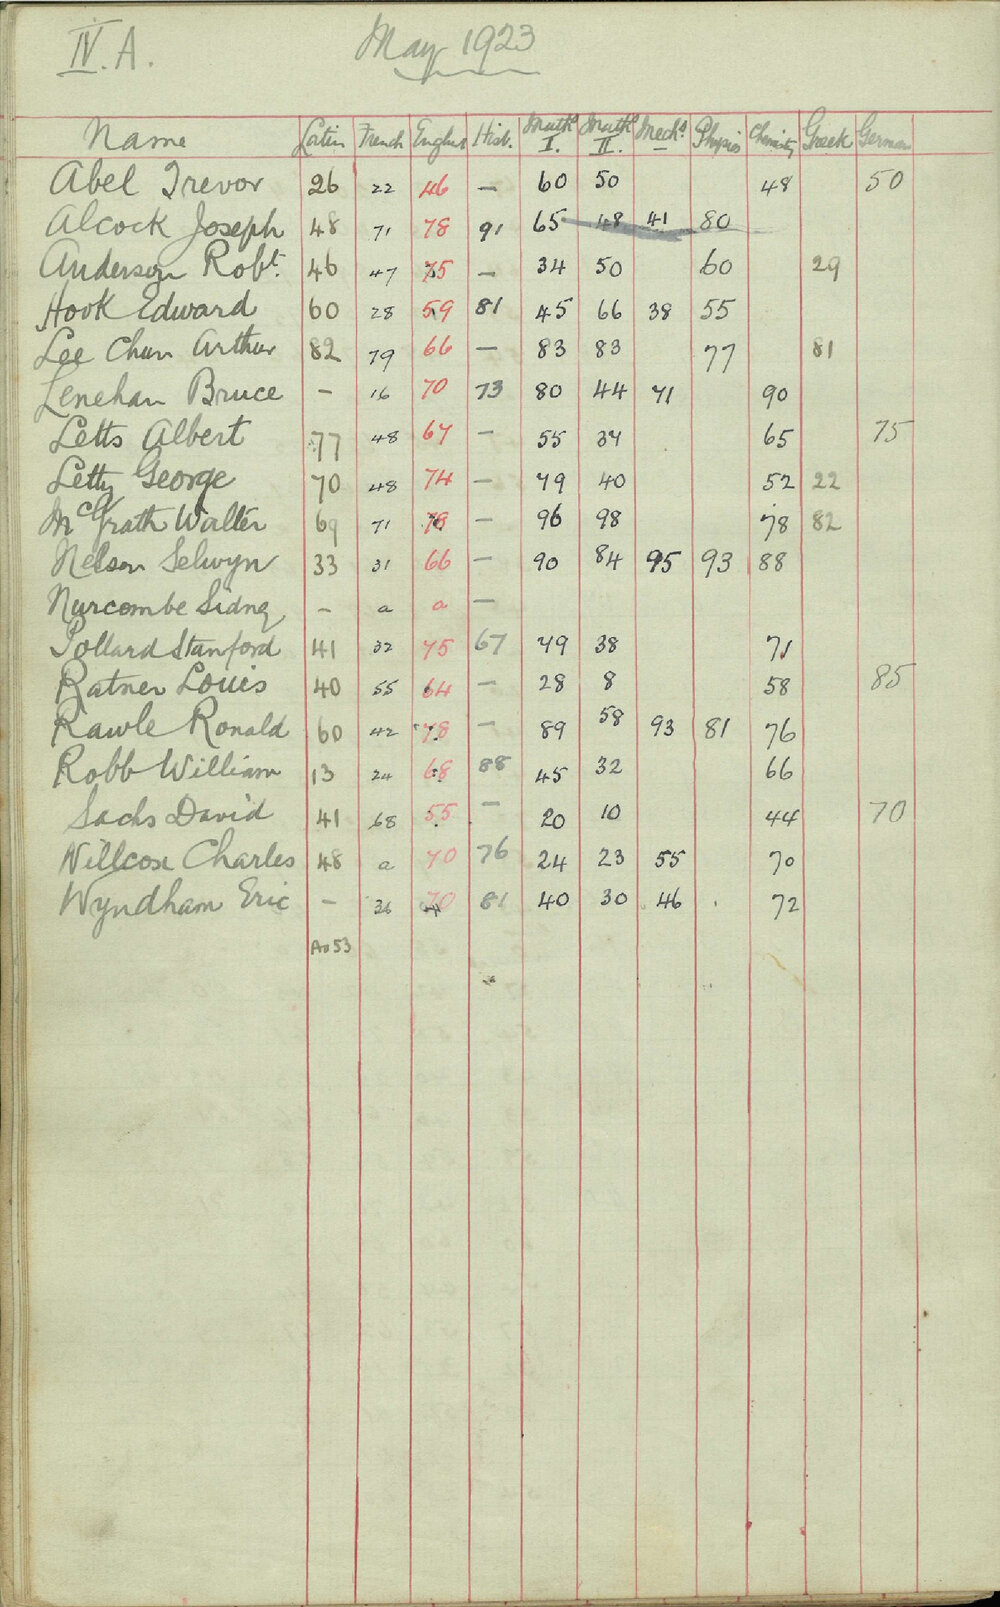 IV. A. May 1923
Name Latin French English Hist. Maths I. Maths II. Mechs Physics Chemistry Greek German
Abel Trevor 26 22 46 — 60 50 48 50
Alcock Joseph 48 71 78 91 65 48 41 80
Anderson Robt. 46 47 75 — 34 50 60 29
Hook Edward 60 28 59 81 45 66 38 55
Lee Chun Arthur 82 79 66 — 83 83 77 81
Lenehan Bruce — 16 70 73 80 44 71 90
Letts Albert 77 48 67 — 55 34 65 75
Letty George 70 48 74 — 79 40 52 22
McGrath Walter 69 71 78 — 96 98 78 82
Nelson Selwyn 33 31 66 — 90 84 95 93 88
Nurcombe Sidney — a a —
Pollard Stanford 41 32 75 67 79 38 71
Ratner Louis 40 55 64 — 28 8 58 85
Rawle Ronald 60 42 78 — 89 58 93 81 76
Robb William 13 24 68 88 45 32 66
Sachs David 41 68 55 — 20 10 44 70
Willcox Charles 48 a 70 76 24 23 55 70
Wyndham Eric — 36 70 81 40 30 46 72
Av 53